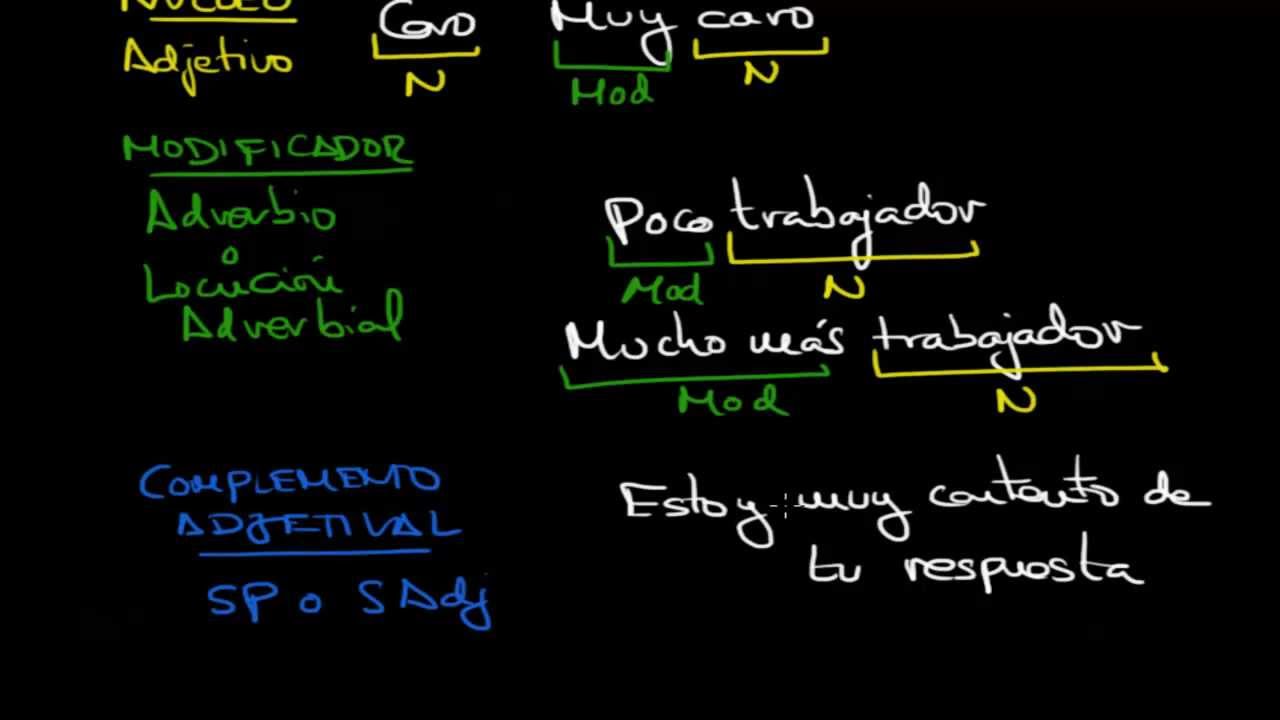 NUCLEO
Caro Muy caro
Adjetivo
N
N
Mod
MODIFICADOR
Adverbio
o
Locución
Adverbial
Poco trabajador
Mod N
Mucho más trabajador
Mod N
COMPLEMENTO
ADJETIVAL
SP o SAdj
Estoy muy contento de
tu respuesta